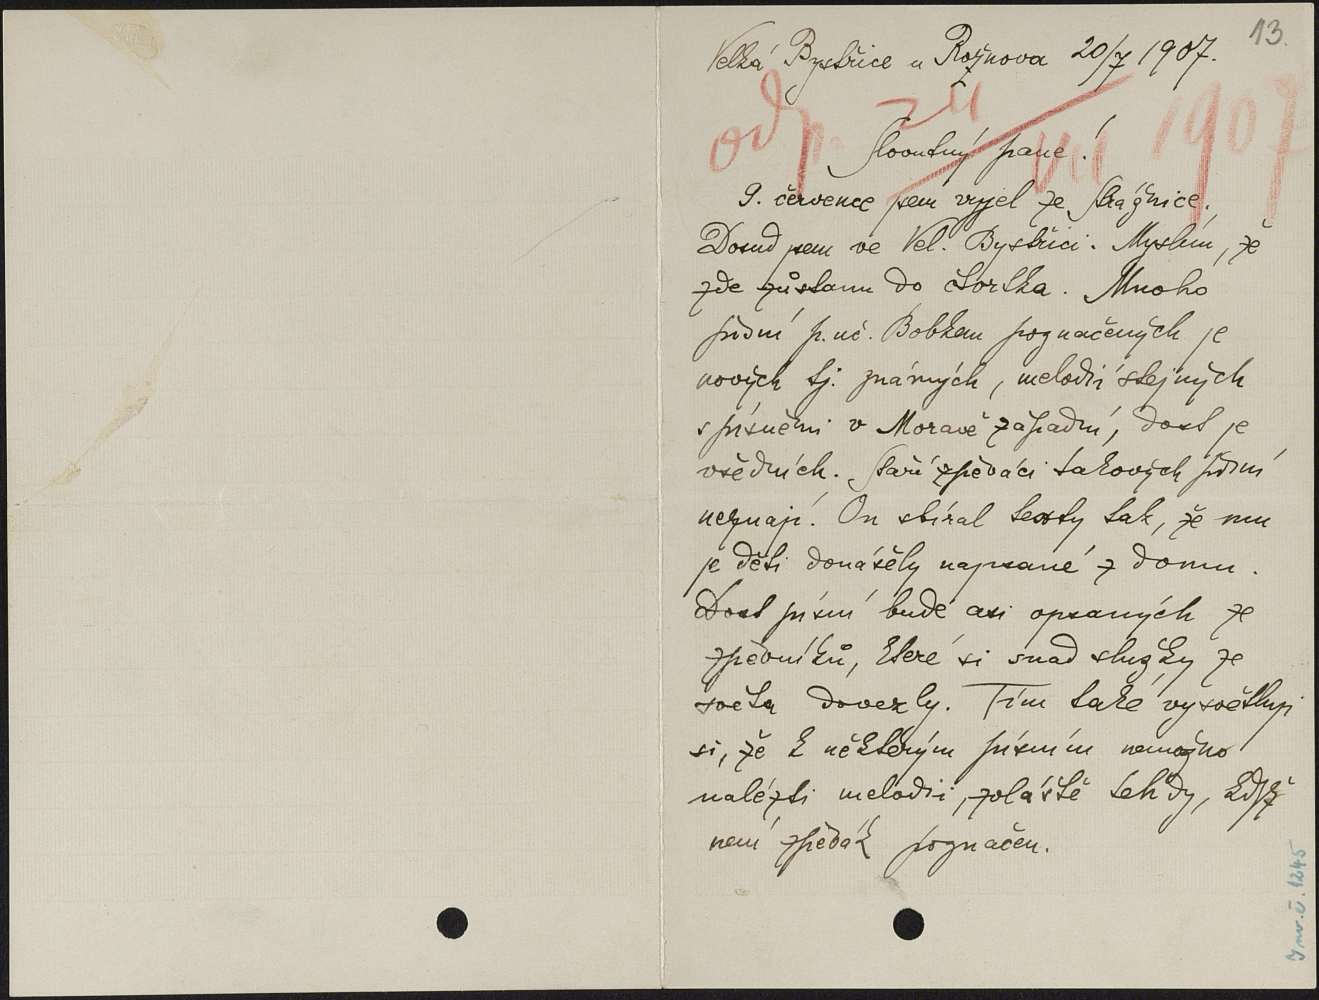 13.
Velká Bystřice u Rožnova 20/7 1907.
odp. 24/VII 1907
Slovutný pane!
9. července jsem vyjel ze Strážnice.
Dosud jsem ve Vel. Bystřici. Myslím, že
zde zůstanu do čtvrtka. Mnoho
písní p. uč. Bobkem poznačených je
nových tj. známých, melodií stejných
s písněmi v Moravě západní, dost je
všedních. Staří zpěváci takových písní
neznají. On sbíral texty tak, že mu
je děti donášely napsané z domu.
Dost písní bude asi opsaných ze
zpěvníků, které si snad služky ze
světa dovezly. Tím také vysvětluji
si, že k některým písním nemožno
nalézti melodii, zvláště tehdy, když
není zpěvák poznačen.
Inv. č. 1245